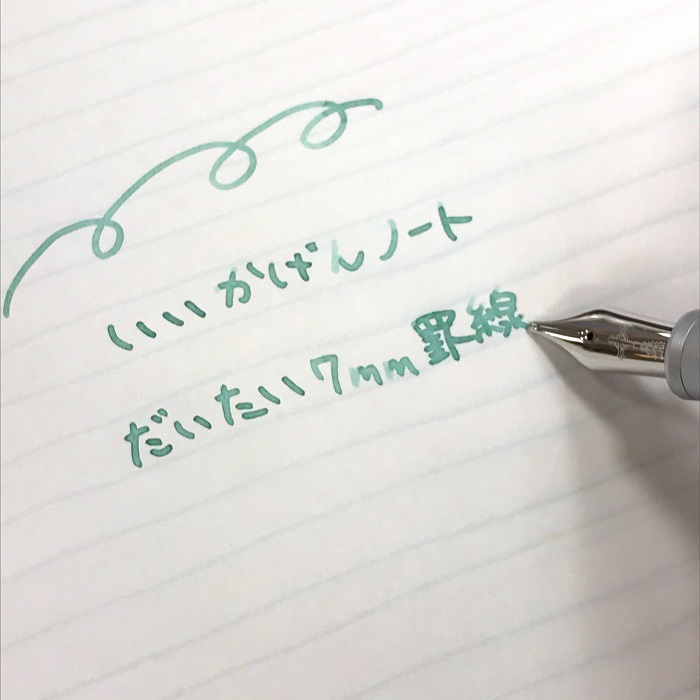 いいかげんノート
だいたい7mm罫線